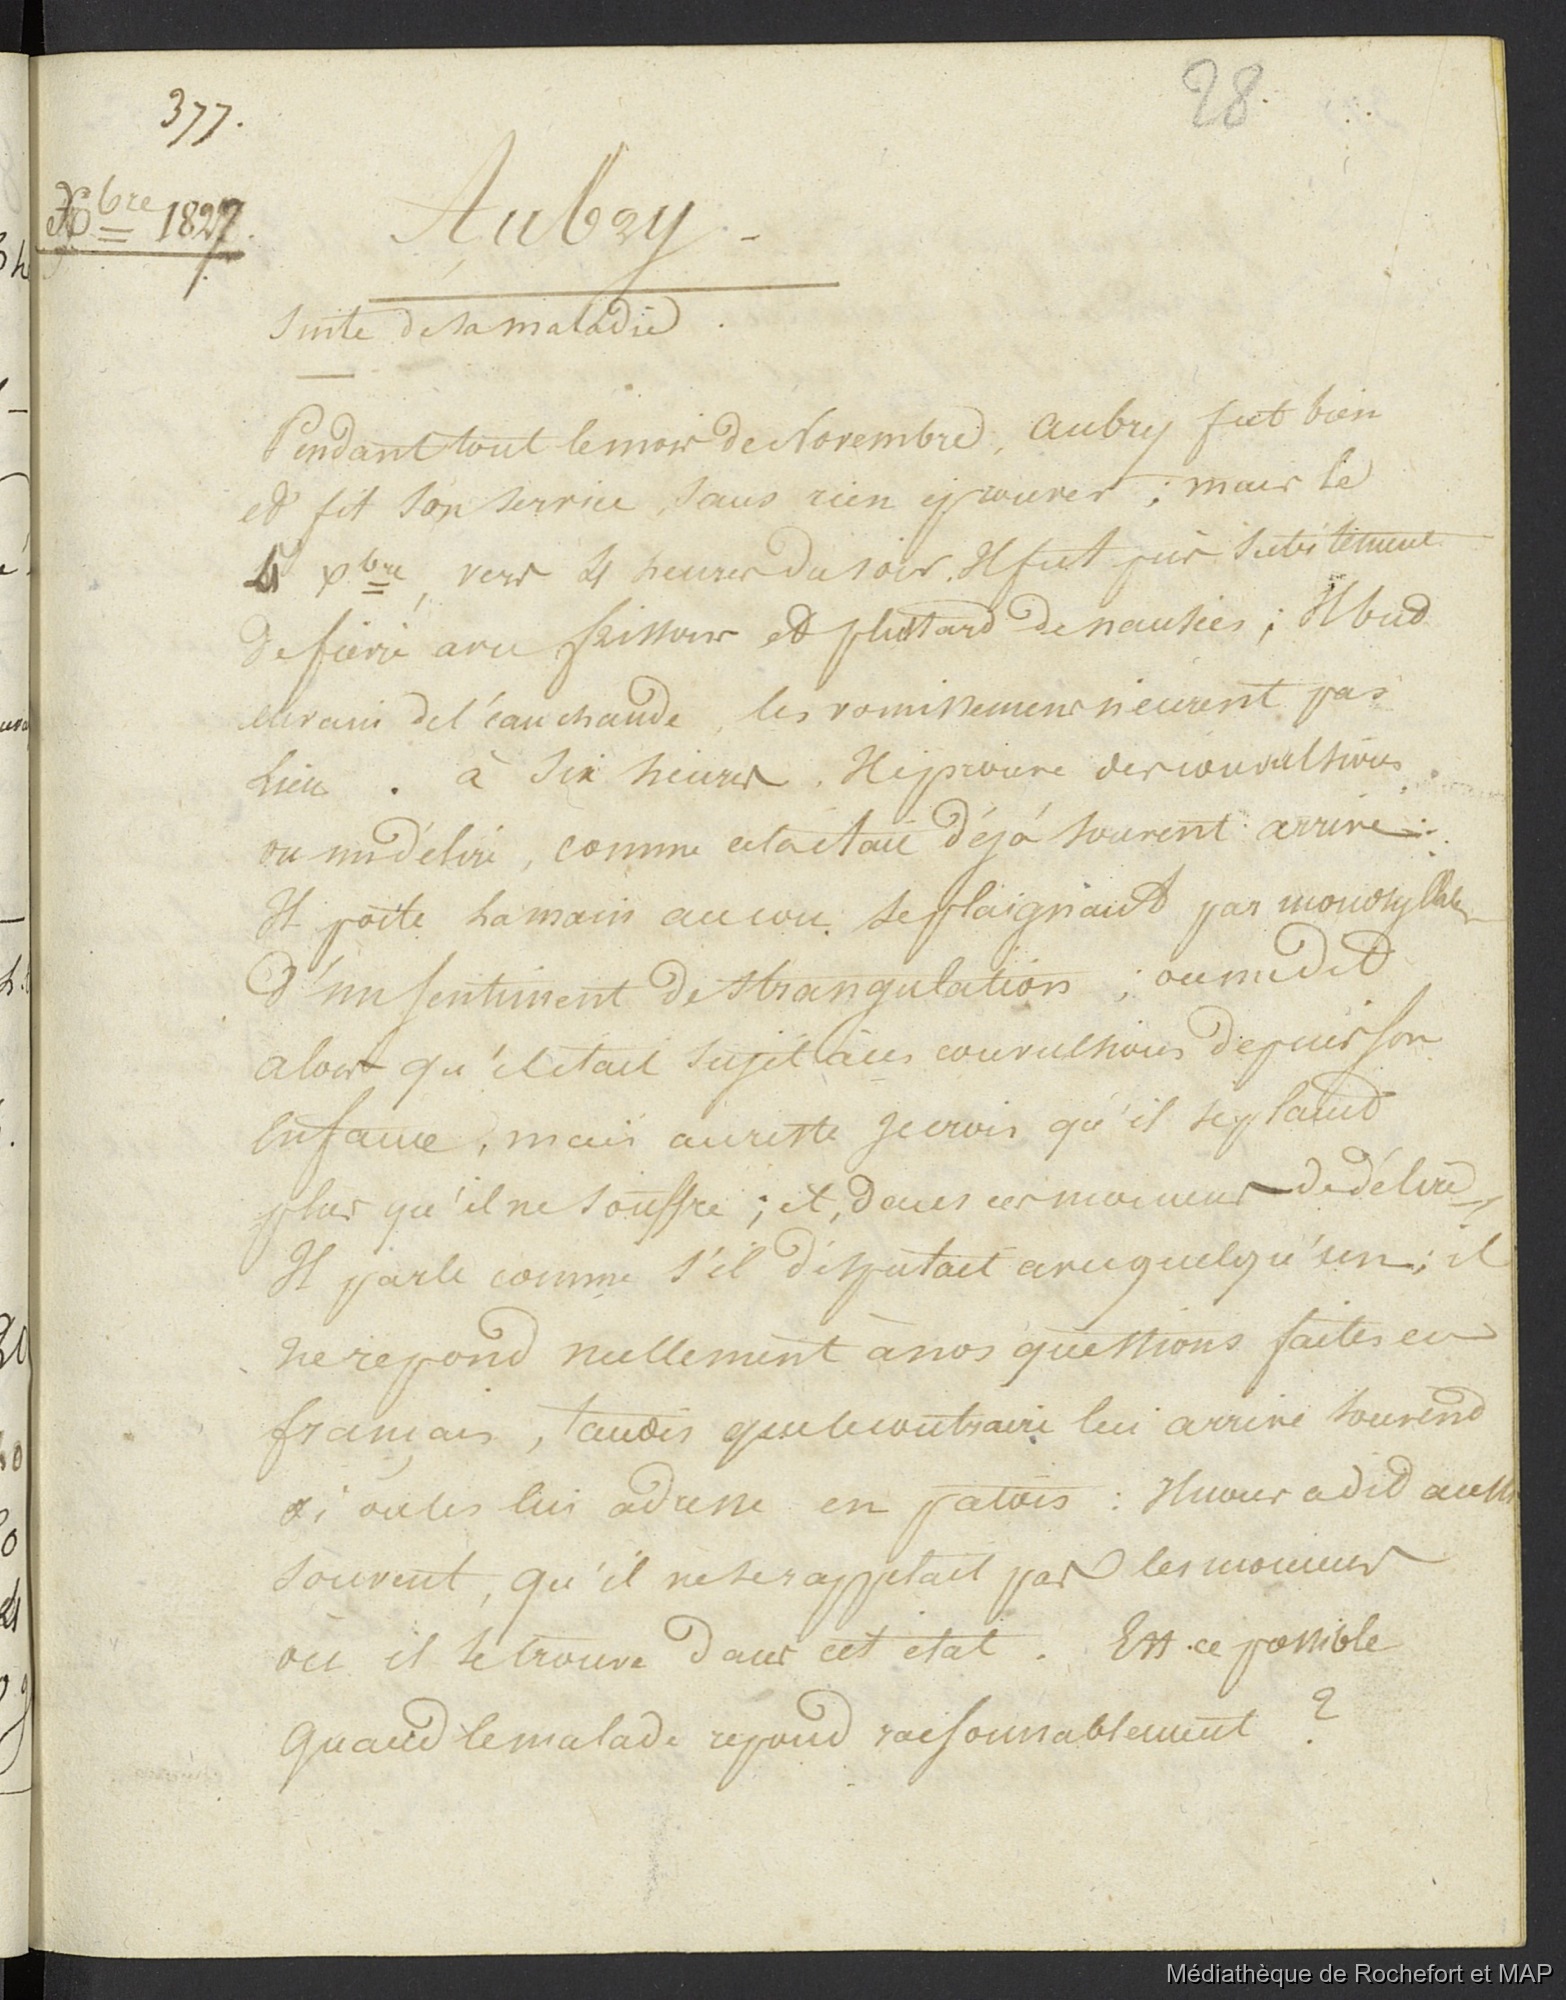 377.
28.
Xbre 1827.
Aubry.
Suite de sa maladie.
Pendant tout le mois de Novembre, aubry fut bien
et fit son service, sans rien eprouver ; mais le
4 xbre, vers 4 heures du soir. Il fut pris subitement
de fièvre avec frissons et plustard de nausées ; Il but
envain de l'eau chaude, les vomissemens n'eurent pas
lieu. à six heures. Il eprouve des convulsions.
ou un délire, comme cela était déjà souvent arrivé.
Il porte la main au cou, se plaignant par monosyllabes
d'un sentiment de strangulation ; on me dit
alors qu'il était sujet à ces convulsions depuis son
enfance, mais aureste je crois qu'il se plaint
plus qu'il ne souffre ; et, dans ces momens de délire,
Il parle comme s'il disputait avec quelqu'un ; il
ne repond nullement à nos questions faites en
français, tandis que le contraire lui arrive souvend
si on les lui adresse en patois : Il nous a dit aussi
souvent, qu'il ne se rappelait pas les momens
où il se trouve dans cet état. Est-ce possible
quand le malade repond raisonnablement ?
Médiathèque de Rochefort et MAP